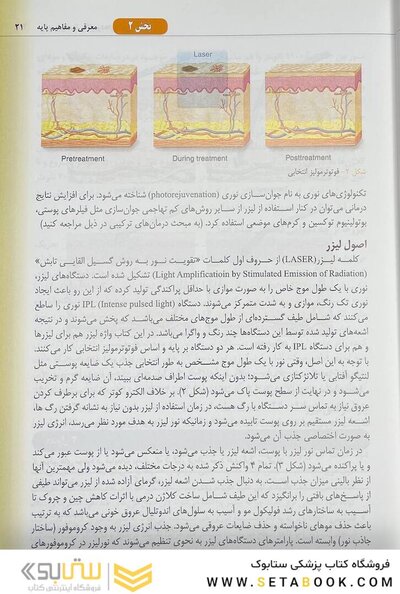 بخش ۲ معرفی و مفاهیم پایه ۲۱
Laser
Pretreatment During treatment Posttreatment
شکل ۲- فوتوترمولیز انتخابی
تکنولوژی‌های نوری به نام جوان‌سازی نوری (photorejuvenation) شناخته می‌شود. برای افزایش نتایج
درمانی می‌توان در کنار استفاده از لیزر از سایر روش‌های کم تهاجمی جوان‌سازی مثل فیلرهای پوستی،
بوتولینیوم توکسین و کرم‌های موضعی استفاده کرد. (به مبحث درمان‌های ترکیبی در ذیل مراجعه کنید)
اصول لیزر
کلمه لیزر (LASER) از حروف اول کلمات «تقویت نور به روش گسیل القایی تابش»
(Light Amplificatioin by Stimulated Emission of Radiation) تشکیل شده است. دستگاه‌های لیزر،
نوری با یک طول موج خاص را به صورت موازی با حداقل پراکندگی تولید کرده که از این رو باعث ایجاد
نوری تک رنگ، موازی و به شدت متمرکز می‌شوند. دستگاه IPL (Intense pulsed light) نوری را ساطع
می‌کنند که شامل طیف گسترده‌ای از طول موج‌های مختلف می‌باشد که پخش می‌شوند و در نتیجه
اشعه‌های تولید شده توسط این دستگاه‌ها چند رنگ و واگرا می‌باشد. در این کتاب واژه لیزر هم برای لیزرها
و هم برای دستگاه IPL به کار رفته است. هر دو دستگاه بر پایه و اساس فوتوترمولیز انتخابی کار می‌کنند.
با توجه به این اصل، وقتی نور با یک طول موج مشخص به طور انتخابی جذب یک ضایعه پوستی مثل
لنتیگو آفتابی یا تلانژکتازی می‌شود؛ بدون اینکه پوست اطراف صدمه‌ای ببیند، آن ضایعه گرم و تخریب
می‌شود و در نهایت از سطح پوست پاک می‌شود (شکل ۲). بر خلاف الکترو کوتر که برای برطرف کردن
عروق نیاز به تماس سر دستگاه با رگ هست، در زمان استفاده از لیزر بدون نیاز به نشانه گرفتن رگ ها،
اشعه لیزر مستقیم بر روی پوست تابیده می‌شود و زمانیکه نور لیزر به هدف مورد نظر می‌رسد، انرژی لیزر
به صورت اختصاصی جذب آن می‌شود.
در زمان تماس نور لیزر با پوست، اشعه لیزر یا جذب می‌شود، یا منعکس می‌شود یا از پوست عبور می‌کند
و یا پراکنده می‌شود (شکل ۳). تمام ۴ واکنش ذکر شده به درجات مختلف، دیده می‌شود ولی مهمترین آنها
از نظر بالینی میزان جذب است. به دنبال جذب شدن اشعه لیزر، گرمای آزاده شده از لیزر می‌تواند طیفی
از پاسخ‌های بافتی را برانگیزد که این طیف شامل ساخت کلاژن درمی با اثرات کاهش چین و چروک تا
آسیب به ساختارهای رشد فولیکول مو و آسیب به سلول‌های اندوتلیال عروق خونی می‌باشد که به ترتیب
باعث حذف موهای ناخواسته و حذف ضایعات عروقی می‌شود. جذب انرژی لیزر به وجود کروموفور (ساختار
جاذب نور) وابسته است. پارامترهای دستگاه‌های لیزر به نحوی تنظیم می‌شوند که نورلیزر در کروموفورهای
فروشگاه کتاب پزشکی ستابوک
WWW.SETABOOK.COM
ستابوک
فروشگاه اینترنتی کتاب